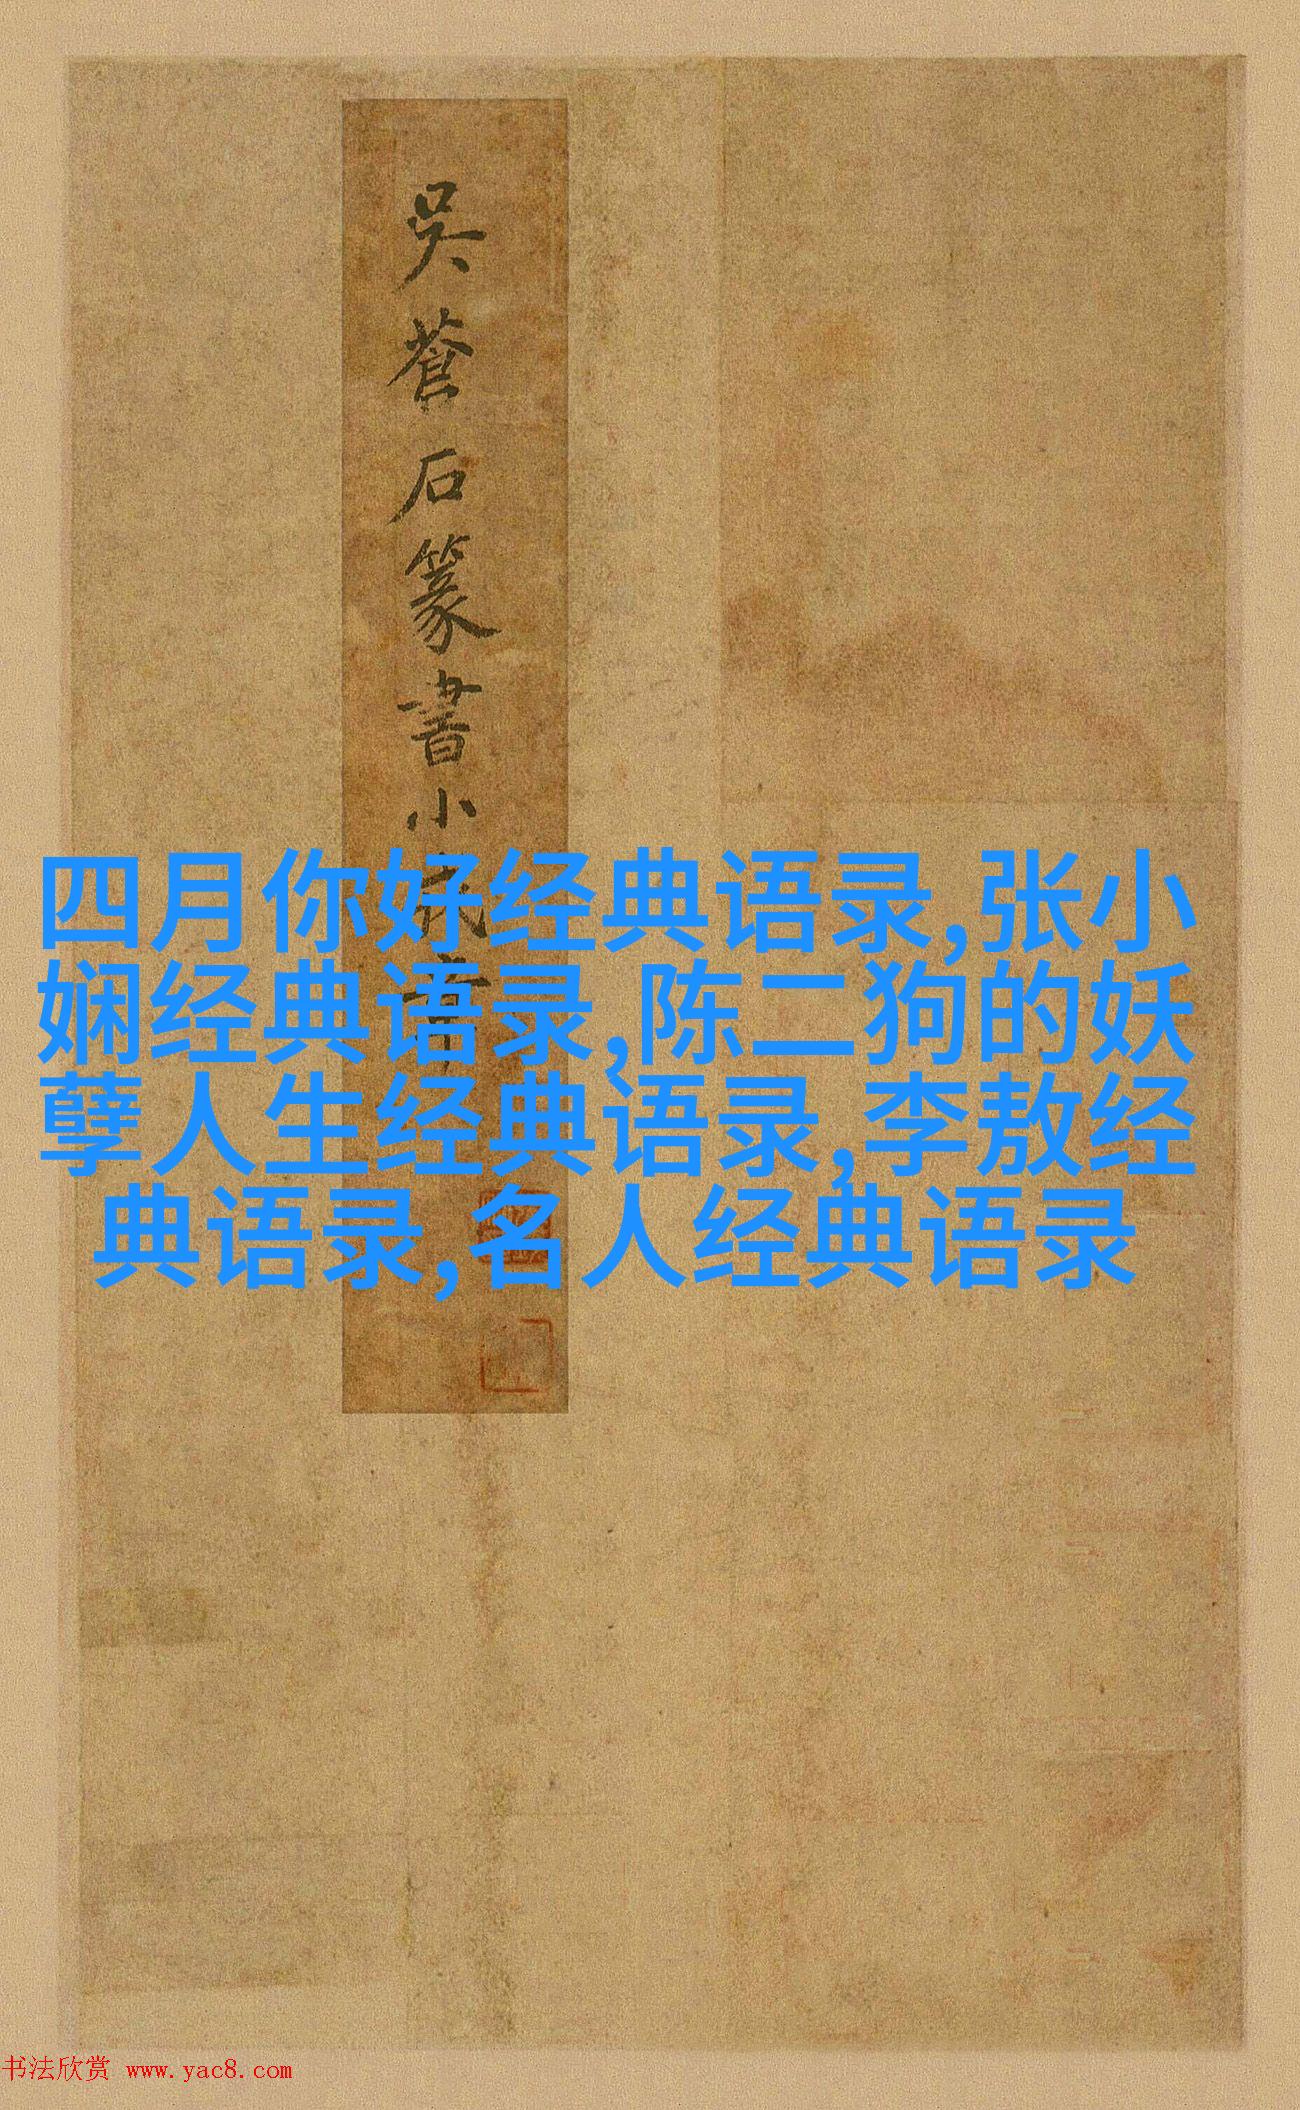 吳蒼石篆書小戎章
四月你好经典语录,张小
娴经典语录,陈二狗的妖
孽人生经典语录,李敖经
典语录,名人经典语录
书法欣赏 www.yac8.com